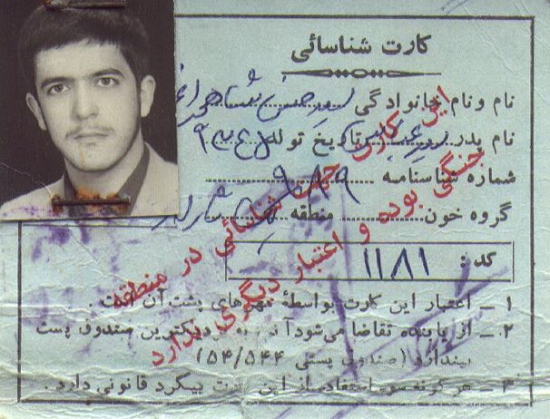 کارت شناسائی
نام و نام خانوادگی سید حسن
نام پدر تاریخ تولد
شماره شناسنامه
گروه خون منطقه
کد : ۱۱۸۱
۱ ـ اعتبار این کارت بواسطهٔ مهرهای پشت آن است .
۲ ـ از یابنده تقاضا می‌شود آن به نزدیکترین صندوق پست
بیندازد (صندوق پستی ۵۴/۵۴۴)
۳ ـ هر گونه سوء استفاده از این کارت پیگرد قانونی دارد .
این کارت جهت شناسائی در منطقه
جنگی بوده و اعتبار دیگری ندارد